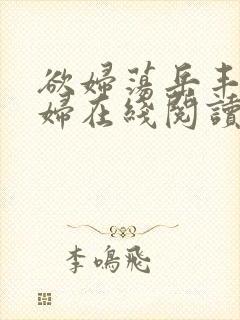 欲婦蕩岳丰
婦在綫閱讀
李鳴飛